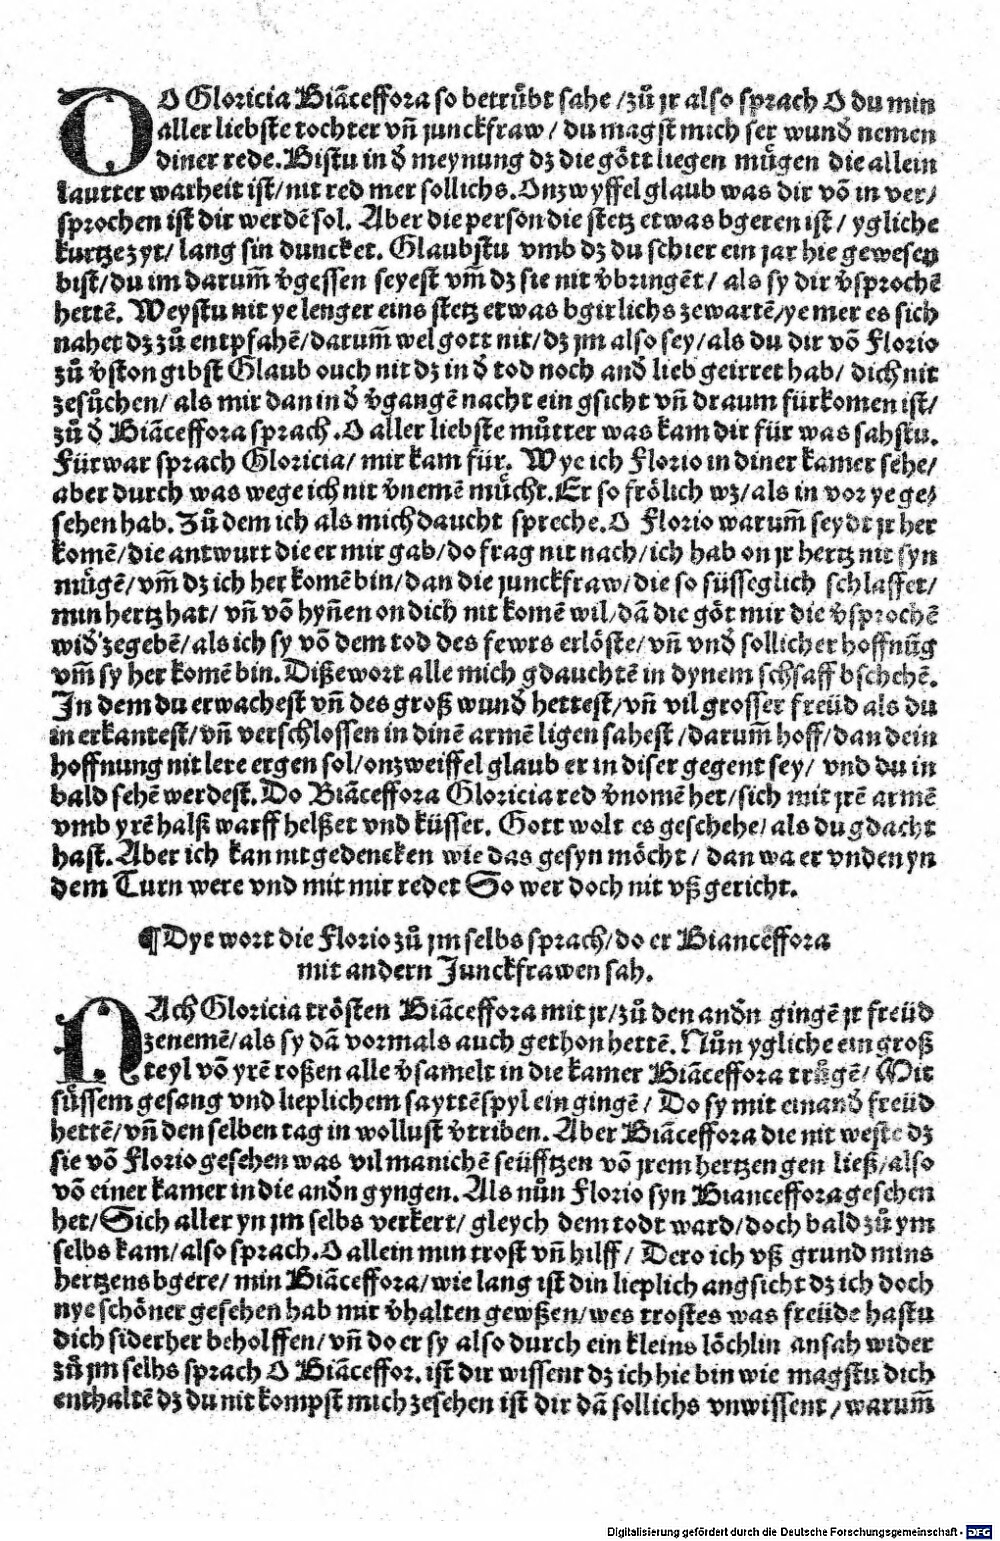 DO Gloricia Biãceffora so betrůbt sahe /zů jr also sprach O du min
aller liebste tochter vñ junckfraw / du magst mich ser wund nemen
diner rede. Bistu in đ meynung dz die gőtt liegen mügen die allein
lautter warheit ist/nit red mer sollichs. Onzwyffel glaub was dir võ in ver/
sprochen ist dir werdẽ sol. Aber die person die stetz etwas bgeren ist/ ygliche
kurtze zyt/ lang sin duncket. Glaubstu vmb dz du schier ein jar hie gewesen
bist/du im darum̃ v̉gessen seyest vm̃ dz sie nit v̉bringẽt/ als sy dir v̉sprochẽ
hettẽ. Weystu nit ye lenger eins stetz etwas bgirlichs zewartẽ/ye mer es sich
nahet dz zů entpfahẽ/darum̃ wel gott nit/dz jm also sey/als du dir võ Florio
zů v̉ston gibst Glaub ouch nit dz in đ tod noch anđ lieb geirret hab/ dich nit
zesůchen/ als mir dan in đ v̉gangẽ nacht ein gsicht vñ draum fürkomen ist/
zů đ Biãceffora sprach. O aller liebste můtter was kam dir für was sahstu.
Fürwar sprach Gloricia/ mir kam für. Wye ich Florio in diner kamer sehe/
aber durch was wege ich nit v̉nemẽ mücht. Er so frőlich wz/als in vor ye ge/
sehen hab. Zů dem ich als mich daucht spreche. O Florio warum̃ seydt jr her
komẽ/die antwurt die er mir gab/do frag nit nach/ich hab on jr hertz nit syn
mügẽ/vm̃ dz ich her komẽ bin/dan die junckfraw/die so süsseglich schlaffet/
min hertz hat/ vñ võ hyñen on dich nit komẽ wil/dã die gőt mir die v̉sprochẽ
wiđ zegebẽ/als ich sy võ dem tod des fewrs erlőste/vñ vnđ sollicher hoffnũg
vm̃ sy her komẽ bin. Diße wort alle mich gdauchtẽ in dynem schsaff bschehẽ.
In dem du erwachest vñ des groß wunđ hettest/vñ vil grosser freüd als du
in erkantest/vñ verschlossen in dinẽ armẽ ligen sahest /darum̃ hoff/dan dein
hoffnung nit lere ergen sol/onzweiffel glaub er in diser gegent sey/ vnd du in
bald sehẽ werdest. Do Biãceffora Gloricia red v̉nomẽ het/sich mit jrẽ armẽ
vmb yrẽ halß warff helßet vnd küsset. Gott wolt es geschehe/als du gdacht
hast. Aber ich kan nit gedencken wie das gesyn mőcht / dan wa er vnden yn
dem Turn were vnd mit mir redet So wer doch nit vß gericht.
¶Dye wort die Florio zů jm selbs sprach/do er Bianceffora
mit andern Junckfrawen sah.
NAch Gloricia trősten Biãceffora mit jr/zů den anđn gingẽ jr freüd
zenemẽ/als sy dã vormals auch gethon hettẽ. Nůn ygliche ein groß
teyl võ yrẽ roßen alle v̉samelt in die kamer Biãceffora trůgẽ/ Mit
süssem gesang vnd lieplichem sayttẽspyl ein gingẽ/ Do sy mit einanđ freüd
hettẽ/vñ den selben tag in wollust v̉triben. Aber Biãceffora die nit weste dz
sie võ Florio gesehen was vil manichẽ seüfftzen võ jrem hertzen gen ließ/also
võ einer kamer in die anđn gyngen. Als nůn Florio syn Bianceffora gesehen
het/Sich aller yn jm selbs verkert/ gleych dem todt ward/doch bald zů ym
selbs kam/also sprach. O allein min trost vñ hilff/ Dero ich vß grund mins
hertzens bgere/ min Biãceffora/wie lang ist din lieplich angsicht dz ich doch
nye schőner gesehen hab mir v̉halten gewßen/wes trostes was freüde hastu
dich siderher beholffen/vñ do er sy also durch ein kleins lőchlin ansah wider
zů jm selbs sprach O Biãceffor. ist dir wissent dz ich hie bin wie magstu dich
enthaltẽ dz du nit kompst mich zesehen ist dir dã sollichs vnwissent /warum̃
Digitalisierung gefördert durch die Deutsche Forschungsgemeinschaft - DFG